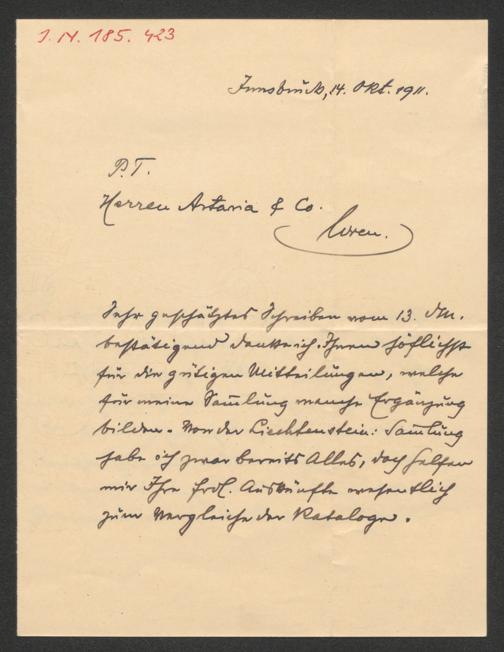 I.N. 185.423
Innsbruck, 14. Okt. 1911.
P.T.
Herren Artaria & Co.
Wien.
Sehr geschätztes Schreiben vom 13. dM.
bestätigend danke ich Ihnen höflichst
für die gütigen Mitteilungen, welche
für meine Sam̄lung manche Ergänzung
bilden. Von der Liechtenstein: Sam̄lung
habe ich zwar bereits Alles, doch helfen
mir Ihre frdl. Auskünfte wesentlich
zum Vergleiche der Kataloge.